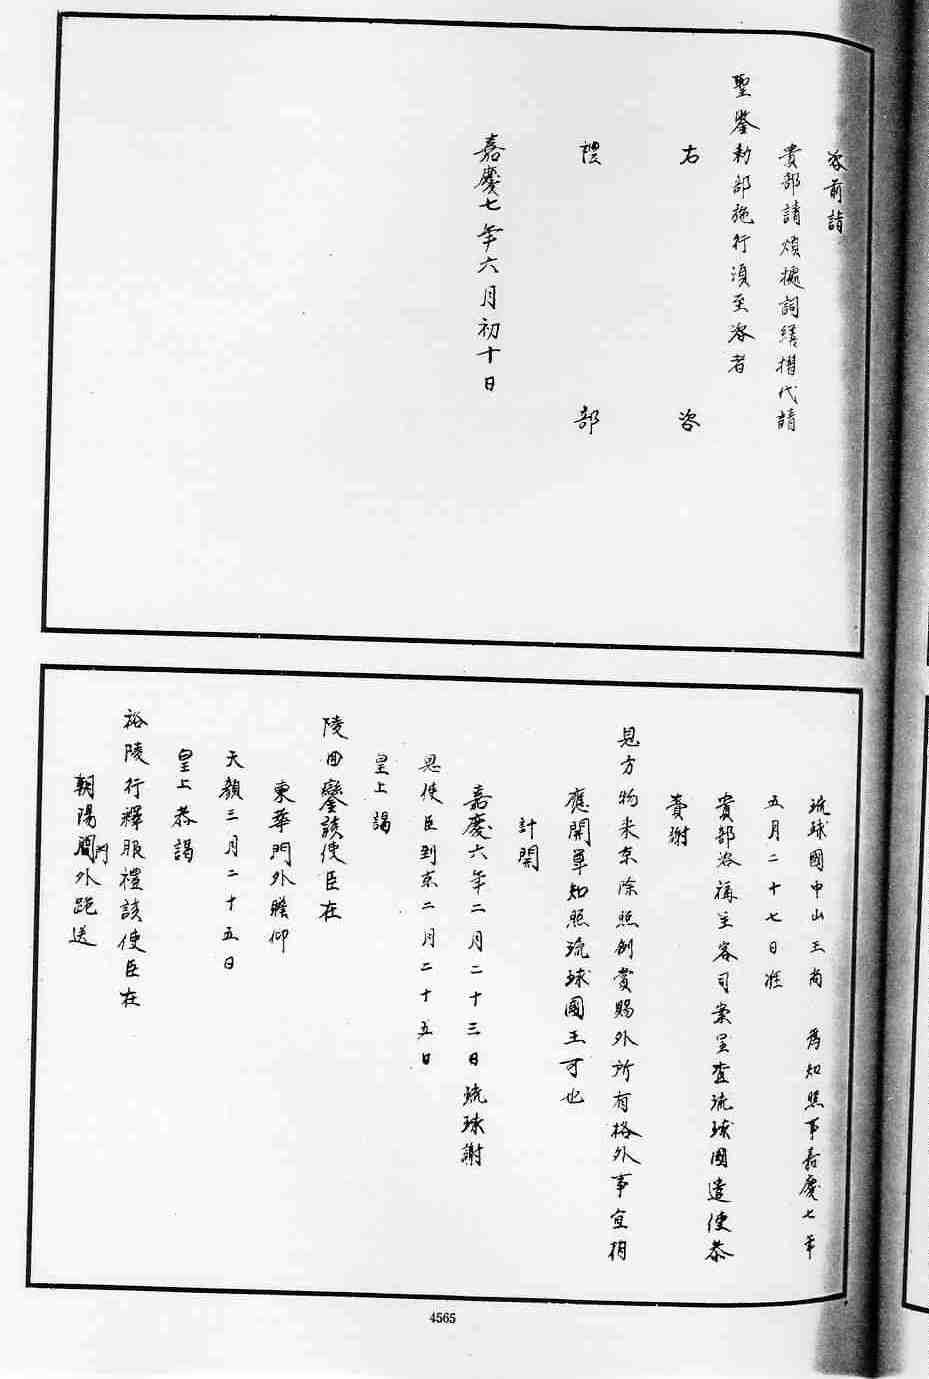 咨前詣
貴部請煩據詞繕摺代請
聖鑒勅部施行須至咨者
右咨
禮部
嘉慶七年六月初十日
琉球國中山王尚 為知照事嘉慶七年
五月二十七日准
貴部咨稱主客司案呈查琉球國遣使恭
賷謝
恩方物來京除照例賞賜外所有格外事宜相
應開單知照琉球國王可也
計開
嘉慶六年二月二十三日琉球謝
恩使臣到京二月二十五日
皇上謁
陵回鑾該使臣在
東華門外瞻仰
天顏三月二十五日
皇上恭謁
裕陵行釋服禮該使臣在
朝陽門外跪送
4565